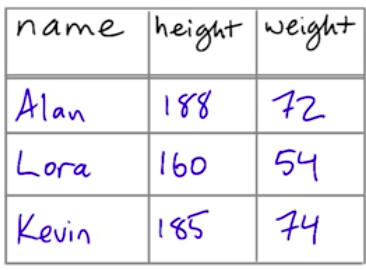 name height weight
Alan 188 72
Lora 160 54
Kevin 185 74